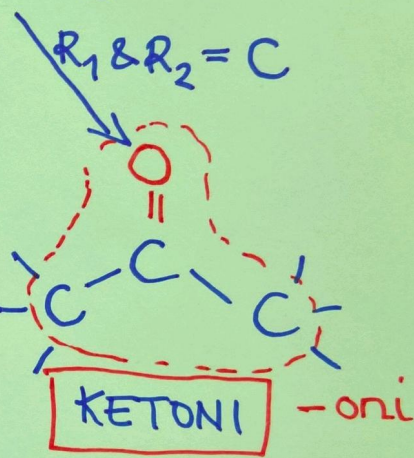 R₁ & R₂ = C
O
||
C
C C
KETONI -oni